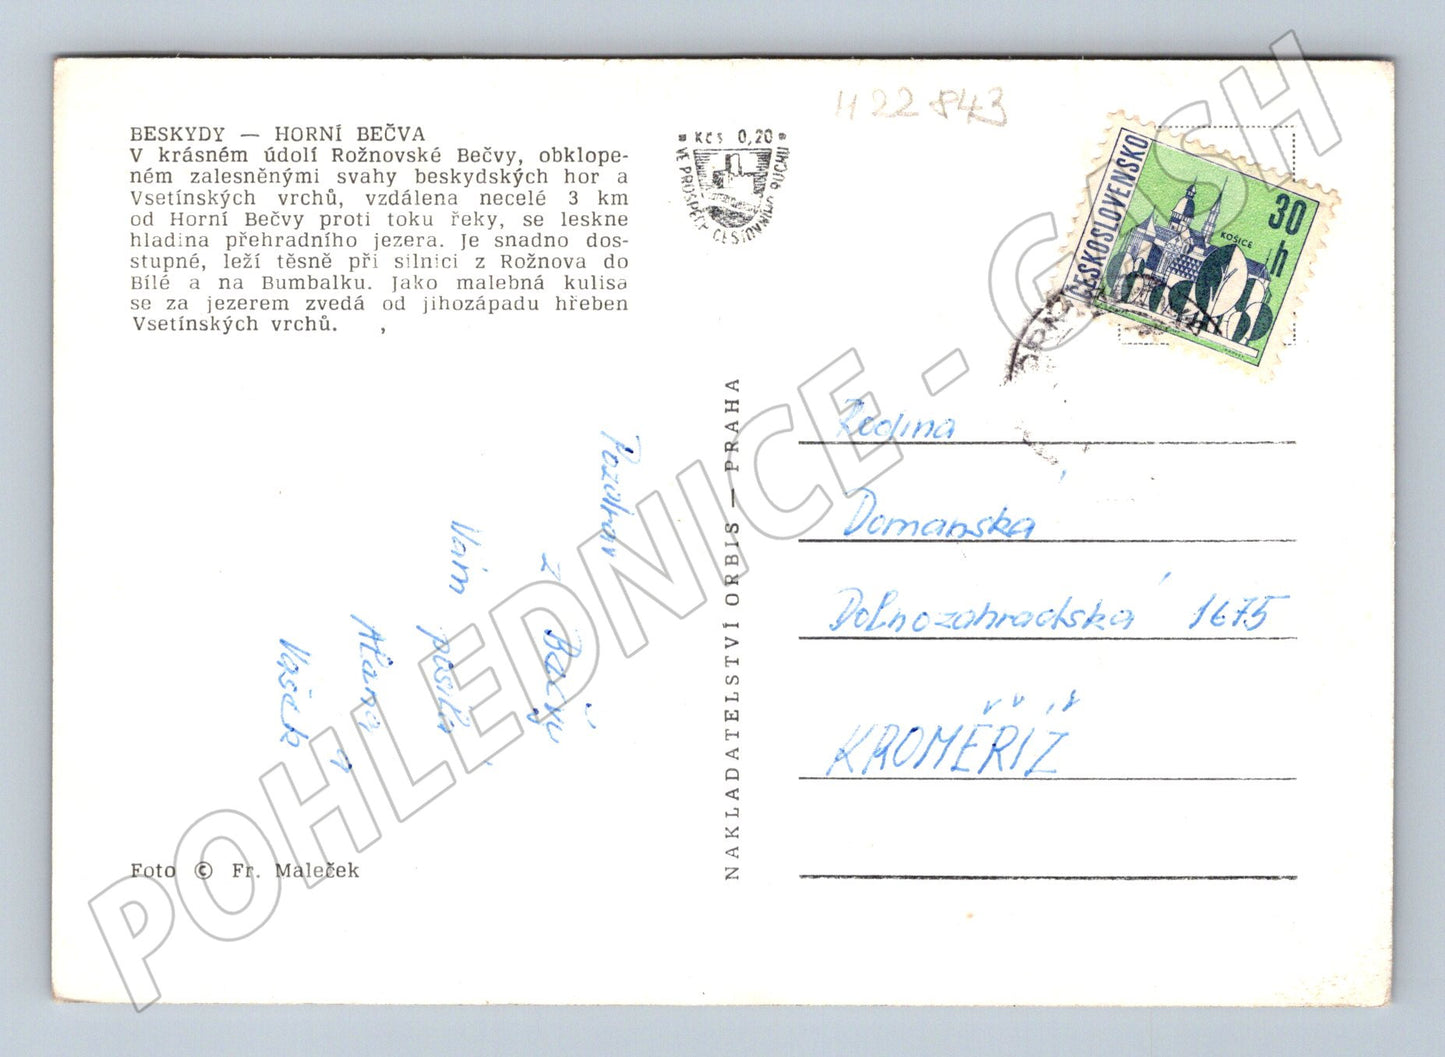 BESKYDY — HORNÍ BEČVA
V krásném údolí Rožnovské Bečvy, obklope-
ném zalesněnými svahy beskydských hor a
Vsetínských vrchů, vzdálena necelé 3 km
od Horní Bečvy proti toku řeky, se leskne
hladina přehradního jezera. Je snadno dos-
stupné, leží těsně při silnici z Rožnova do
Bílé a na Bumbalku. Jako malebná kulisa
se za jezerem zvedá od jihozápadu hřeben
Vsetínských vrchů.
Pozdrav
z Bečvy
Vám
posílá
Alena
Vašek
Foto © Fr. Maleček
NAKLADATELSTVÍ ORBIS — PRAHA
Kčs 0,20
VE PROSPĚCH CESTOVNÍHO RUCHU
422 843
ČESKOSLOVENSKO
30 h
KOŠICE
Rodina
Domanská
Dolnozahradská 1675
KROMĚŘÍŽ
POHLEDNICE - GASH